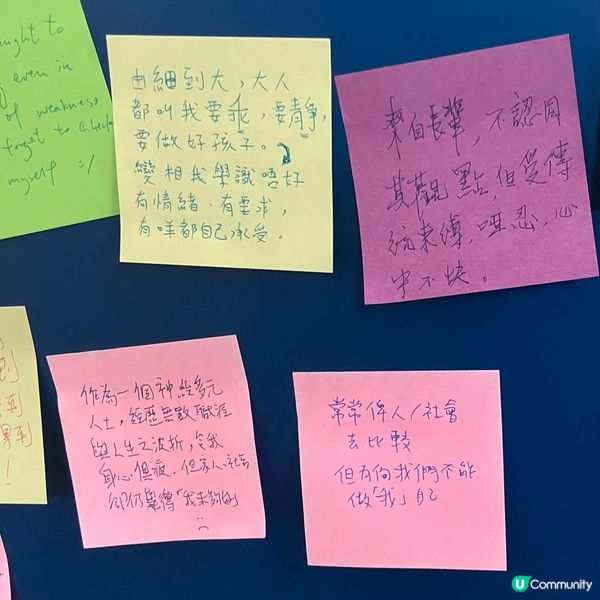 ught to
even in
of weakness.
forget to check
myself :/
由細到大，大人
都叫我要乖，要静，
要做好孩子。
變相我學識唔好
有情緒、有要求，
有咩都自己承受。
來自長輩，不認同
其觀點，但受傳
統束縛，啞忍，心
中不快。
到
到
到
!
作為一個神經多元
人士，經歷無數職涯
與人生之波折，令我
身心俱疲．但家人、社會
卻仍覺得「我未夠好」
:(
常常俾人/社會
去比較
但為何我們不能
做「我」自己
U Community